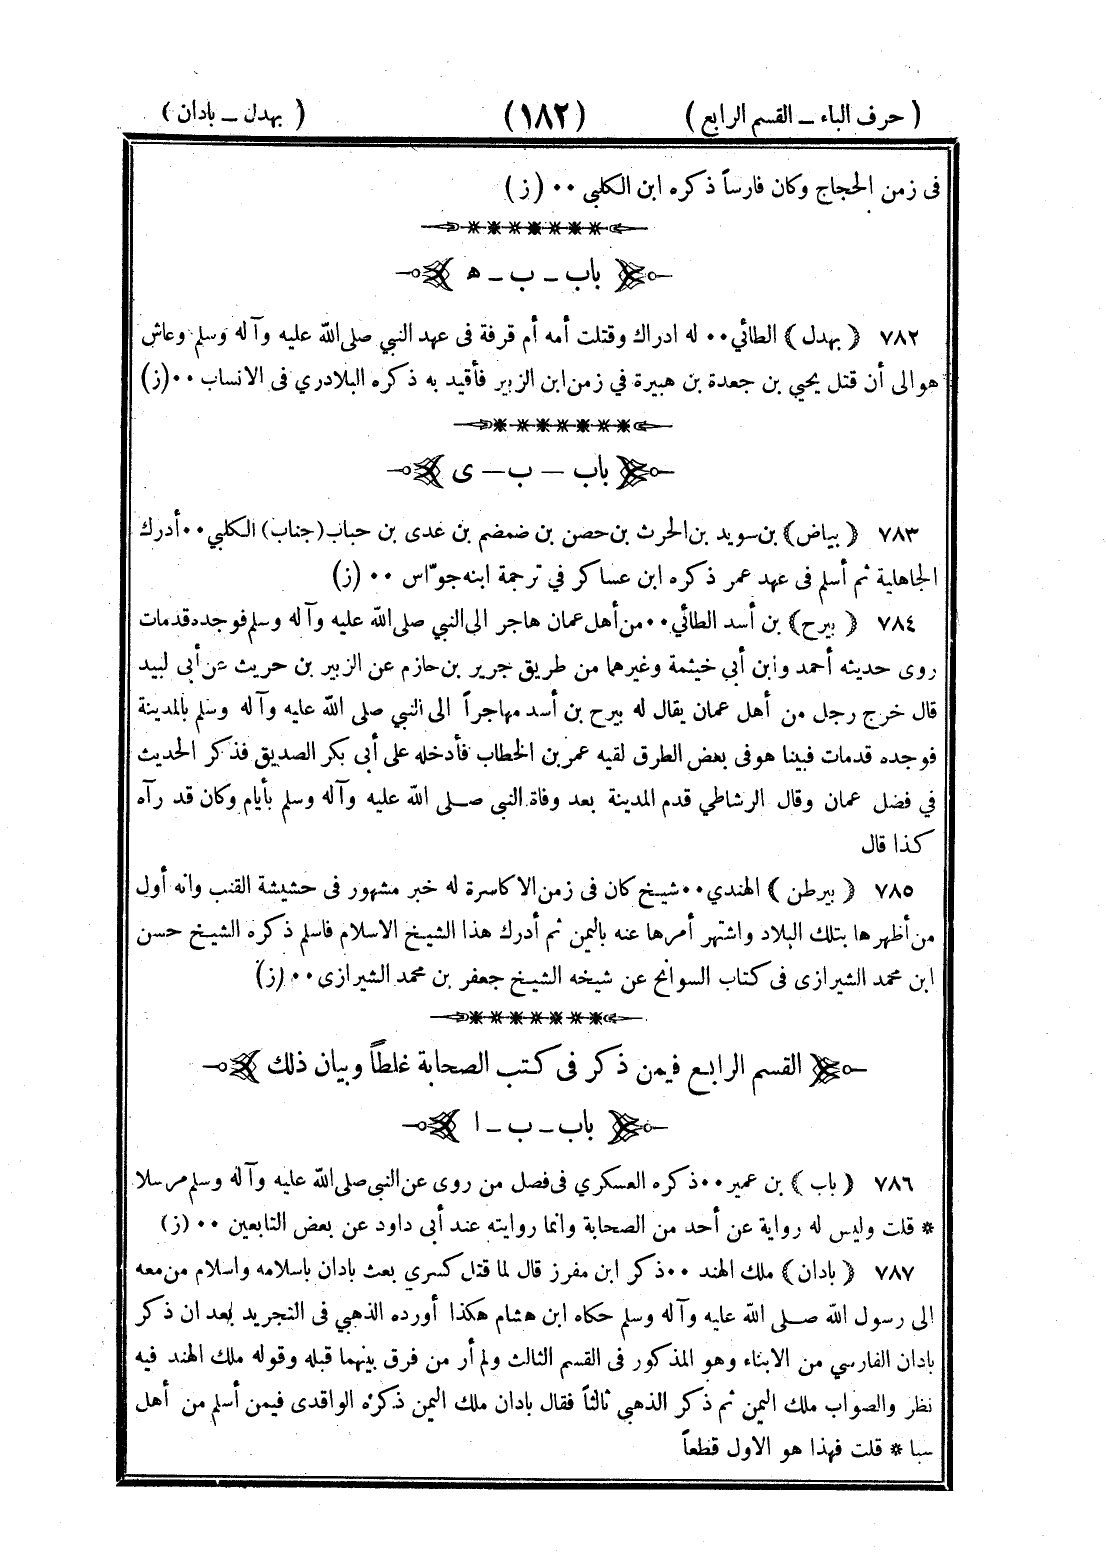 ( حرف الباء ــ القسم الرابع )
(١٨٢)
( بهدل ــ بادان )
فى زمن الحجاج وكان فارساً ذكره ابن الكلبي ٠٠ (ز)
باب ــ ب ــ ه
٧٨٢ ( بهدل ) الطائي ٠٠ له ادراك وقتلت أمه أم قرفة فى عهد النبي صلى الله عليه وآله وسلم وعاش
هو الى أن قتل يحيي بن جعدة بن هبيرة في زمن ابن الزبير فأقيد به ذكره البلادري فى الانساب ٠٠ (ز)
باب ــ ب ــ ى
٧٨٣ ( بياض ) بن سويد بن الحرث بن حصن بن ضمضم بن عدى بن حباب (جناب) الكلبي ٠٠ أدرك
الجاهلية ثم أسلم فى عهد عمر ذكره ابن عساكر في ترجمة ابنه جوّاس ٠٠ (ز)
٧٨٤ ( بيرح ) بن أسد الطائي ٠٠ من أهل عمان هاجر الى النبي صلى الله عليه وآله وسلم فوجده قدمات
روى حديثه أحمد وابن أبي خيثمة وغيرهما من طريق جرير بن حازم عن الزبير بن حريث عن أبى لبيد
قال خرج رجل من أهل عمان يقال له بيرح بن أسد مهاجراً الى النبي صلى الله عليه وآله وسلم بالمدينة
فوجده قدمات فبينا هو فى بعض الطرق لقيه عمر بن الخطاب فأدخله على أبى بكر الصديق فذكر الحديث
في فضل عمان وقال الرشاطي قدم المدينة بعد وفاة النبى صلى الله عليه وآله وسلم بأيام وكان قد رآه
كذا قال
٧٨٥ ( بيرطن ) الهندي ٠٠ شيخ كان فى زمن الاكاسرة له خبر مشهور فى حشيشة القنب وانه أول
من أظهرها بتلك البلاد واشتهر أمرها عنه باليمن ثم أدرك هذا الشيخ الاسلام فاسلم ذكره الشيخ حسن
ابن محمد الشيرازى فى كتاب السوانح عن شيخه الشيخ جعفر بن محمد الشيرازى ٠٠ (ز)
القسم الرابع فيمن ذكر فى كتب الصحابة غلطاً وبيان ذلك
باب ــ ب ــ ا
٧٨٦ ( باب ) بن عمير ٠٠ ذكره العسكري فى فصل من روى عن النبي صلى الله عليه وآله وسلم مرسلا
* قلت وليس له رواية عن أحد من الصحابة وانما روايته عند أبى داود عن بعض التابعين ٠٠ (ز)
٧٨٧ ( بادان ) ملك الهند ٠٠ ذكر ابن مفرز قال لما قتل كسري بعث بادان باسلامه واسلام من معه
الى رسول الله صلى الله عليه وآله وسلم حكاه ابن هشام هكذا أورده الذهبي فى التجريد بعد ان ذكر
بادان الفارسي من الابناء وهو المذكور فى القسم الثالث ولم أر من فرق بينهما قبله وقوله ملك الهند فيه
نظر والصواب ملك اليمن ثم ذكر الذهبي ثالثاً فقال بادان ملك اليمن ذكره الواقدى فيمن أسلم من أهل
سبا * قلت فهذا هو الاول قطعاً